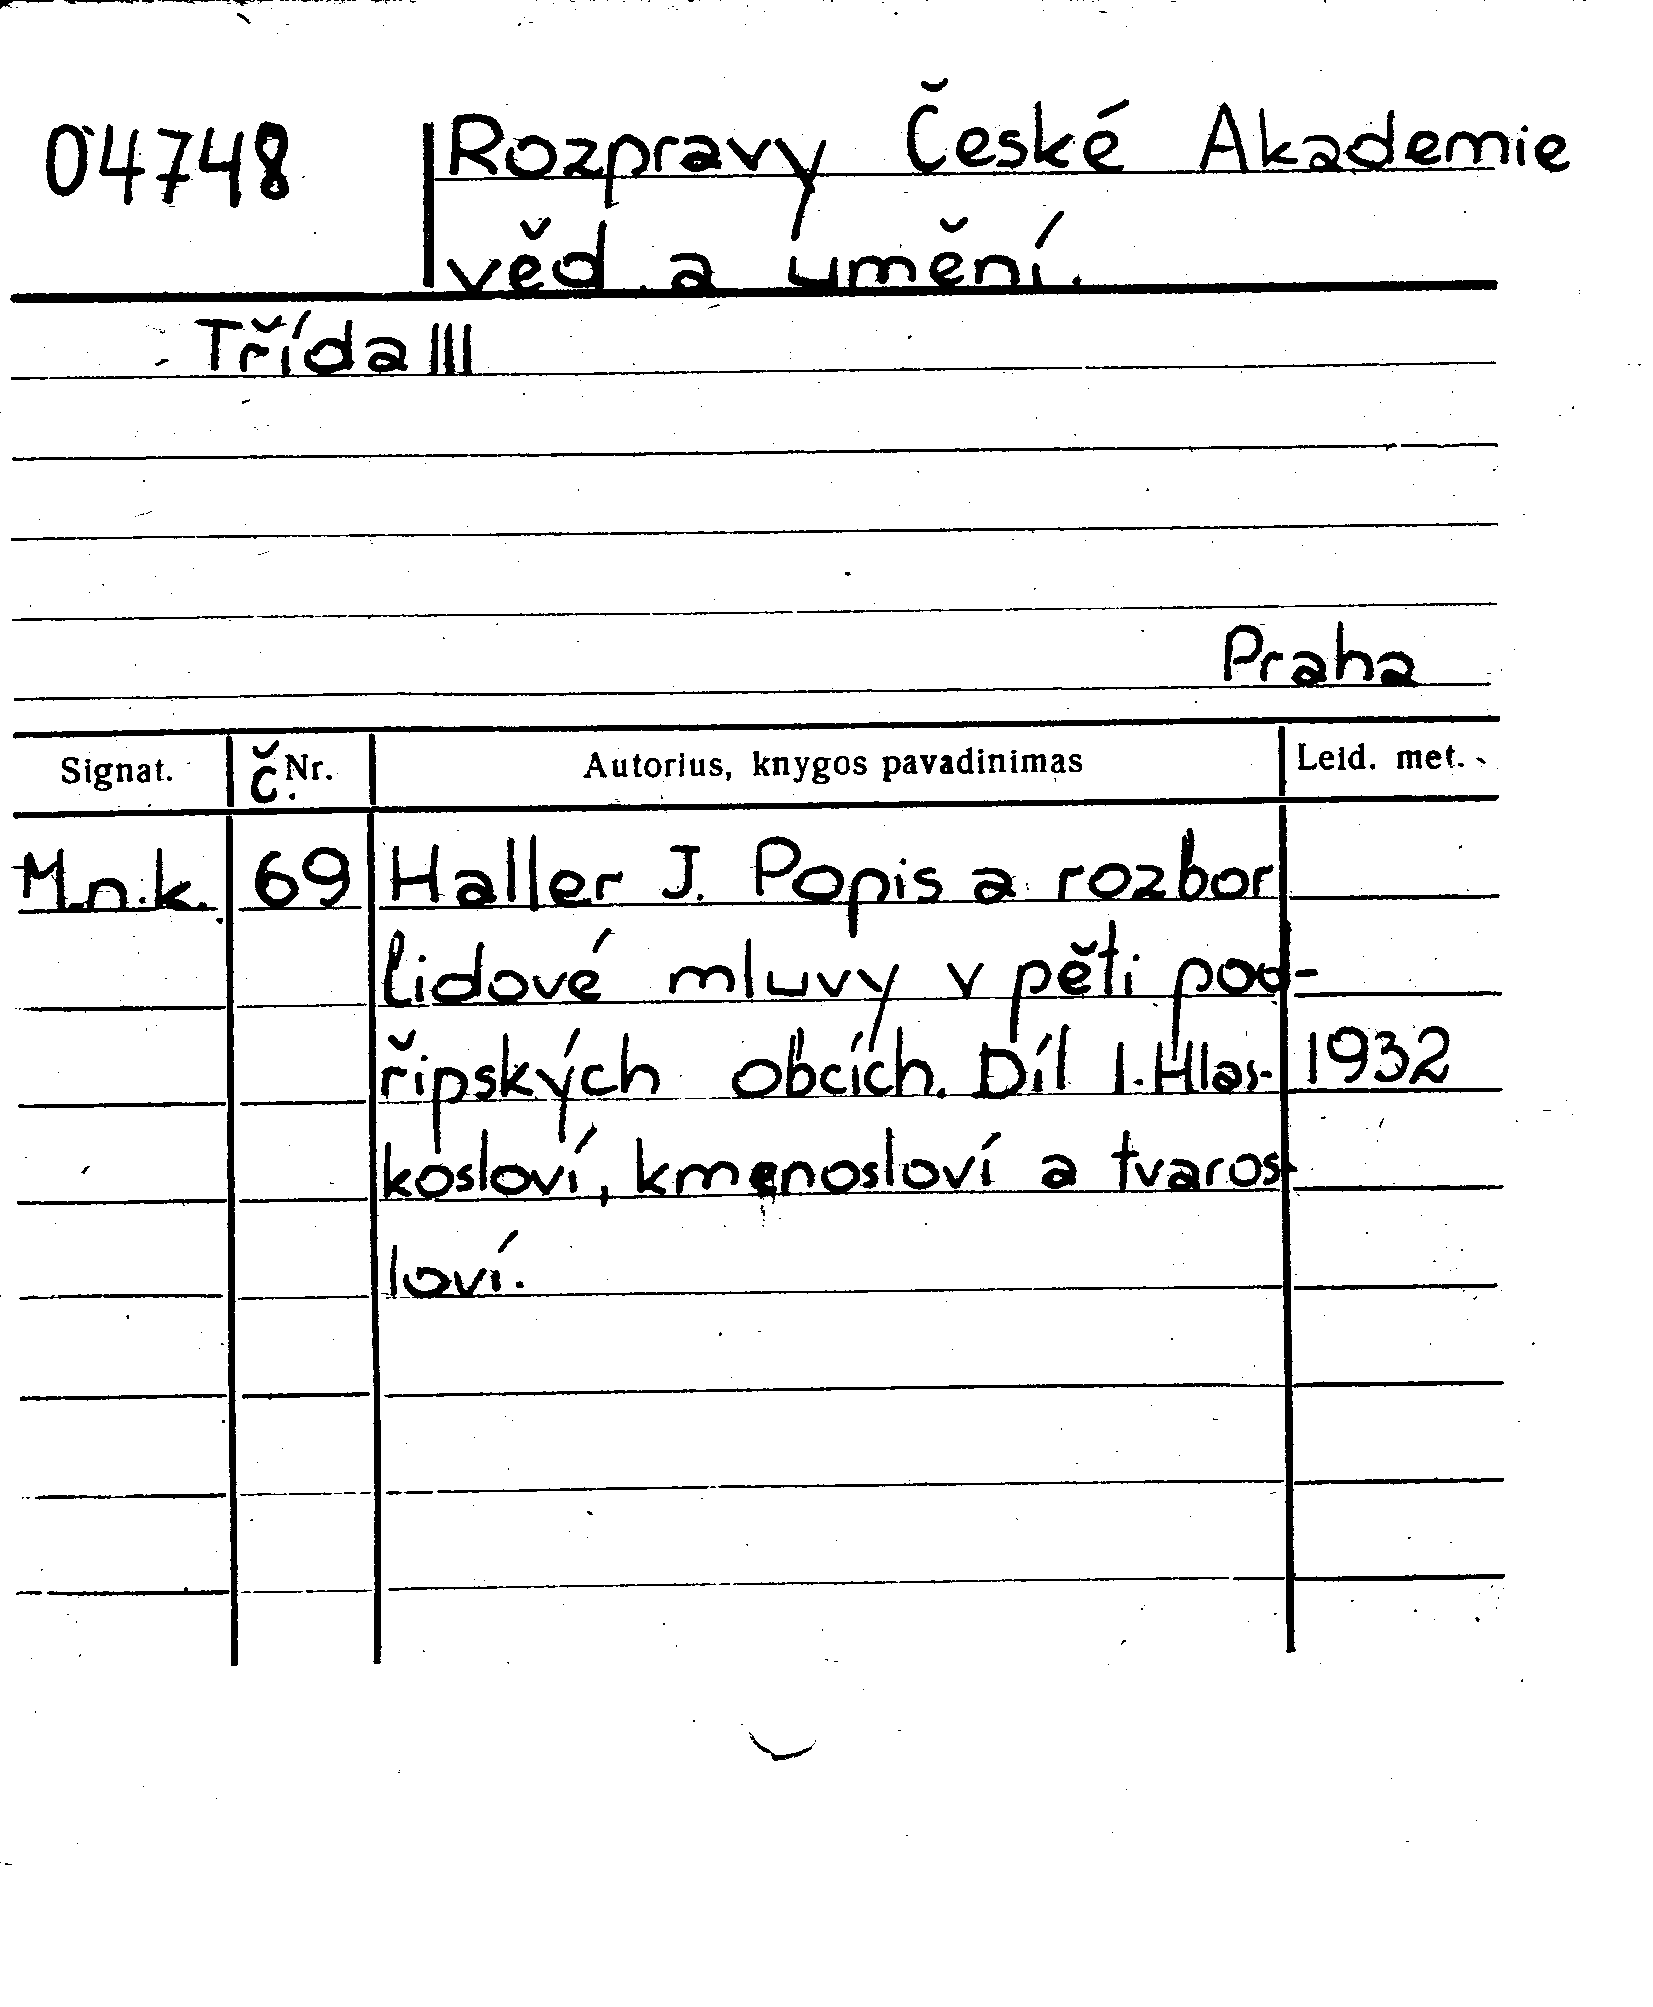 04748 Rozpravy České Akademie
věd a umění.
Třída III
Praha
Signat. Č. Nr. Autorius, knygos pavadinimas Leid. met.
M.n.k. 69 Haller J. Popis a rozbor
lidové mluvy v pěti pod-
řipských obcích. Díl I. Hlas- 1932
kosloví, kmenosloví a tvaros-
loví.